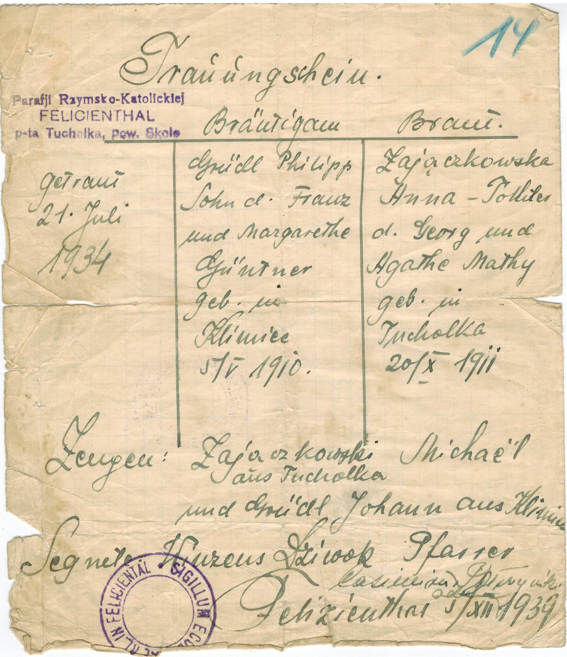 14
Trauungschein.
Parafji Rzymsko-Katolickiej
FELICIENTHAL
p-ta Tucholka, pow. Skole
Bräutigam Braut.
getraut
21. Juli
1934
Grüdl Philipp
Sohn d. Franz
und Margarethe
Güntner
geb. in
Klimiec
5/V 1910.
Zajączkowska
Anna - Tochter
d. Georg und
Agathe Mathy
geb. in
Tucholka
20/X 1911
Zeugen: Zajączkowski Michaël
aus Tucholka
und Grüdl Johann aus Klimiec
Segnete Winzens Dziwok Pfarrer
Casimirus
Felizienthal 5/XII 1939
SIGILLUM ECCL IN FELICIENTAL